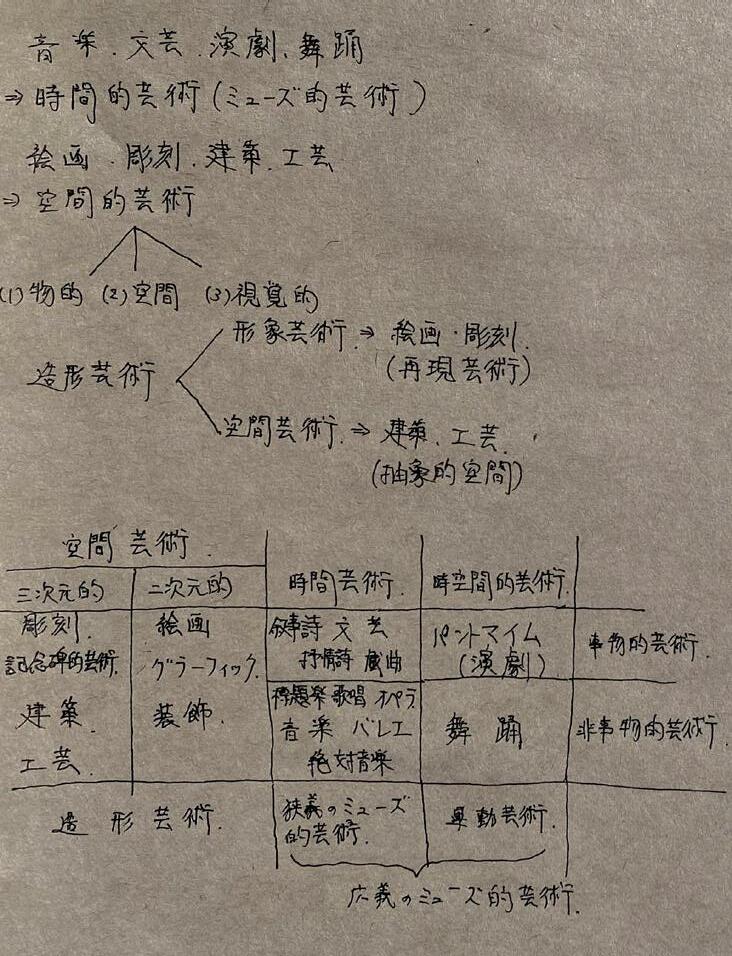 音楽.文芸.演劇、舞踊
⇒時間的芸術(ミューズ的芸術)
絵画.彫刻.建築.工芸
⇒空間的芸術
(1)物的 (2)空間 (3)視覚的
形象芸術⇒絵画・彫刻.
造形芸術 (再現芸術)
空間芸術.⇒建築、工芸.
(抽象的空間)
空間芸術.
三次元的 二次元的 時間芸術. 時空間的芸術.
彫刻. 絵画 叙事詩 文芸 パントマイム
記念碑的芸術. グラーフィック. 抒情詩 戯曲 (演劇) 事物的芸術.
標題楽 歌唱 オペラ
建築. 装飾. 音楽 バレエ 舞踊 非事物的芸術.
工芸. 絶対音楽
造形芸術. 狭義のミューズ 運動芸術.
的芸術.
広義のミューズ的芸術.